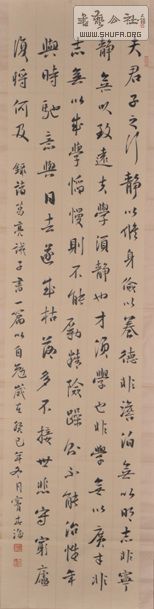 書藝公社
WWW.SHUFA.ORG
夫君子之行靜以修身儉以養德非澹泊無以明志非寧
靜無以致遠夫學須靜也才須學也非學無以廣才非
志無以成學慆慢則不能勵精險躁則不能治性年
與時馳意與日去遂成枯落多不接世悲守窮廬
復將何及 錄諸葛亮誡子書一篇以自勉歲在癸巳年冬月